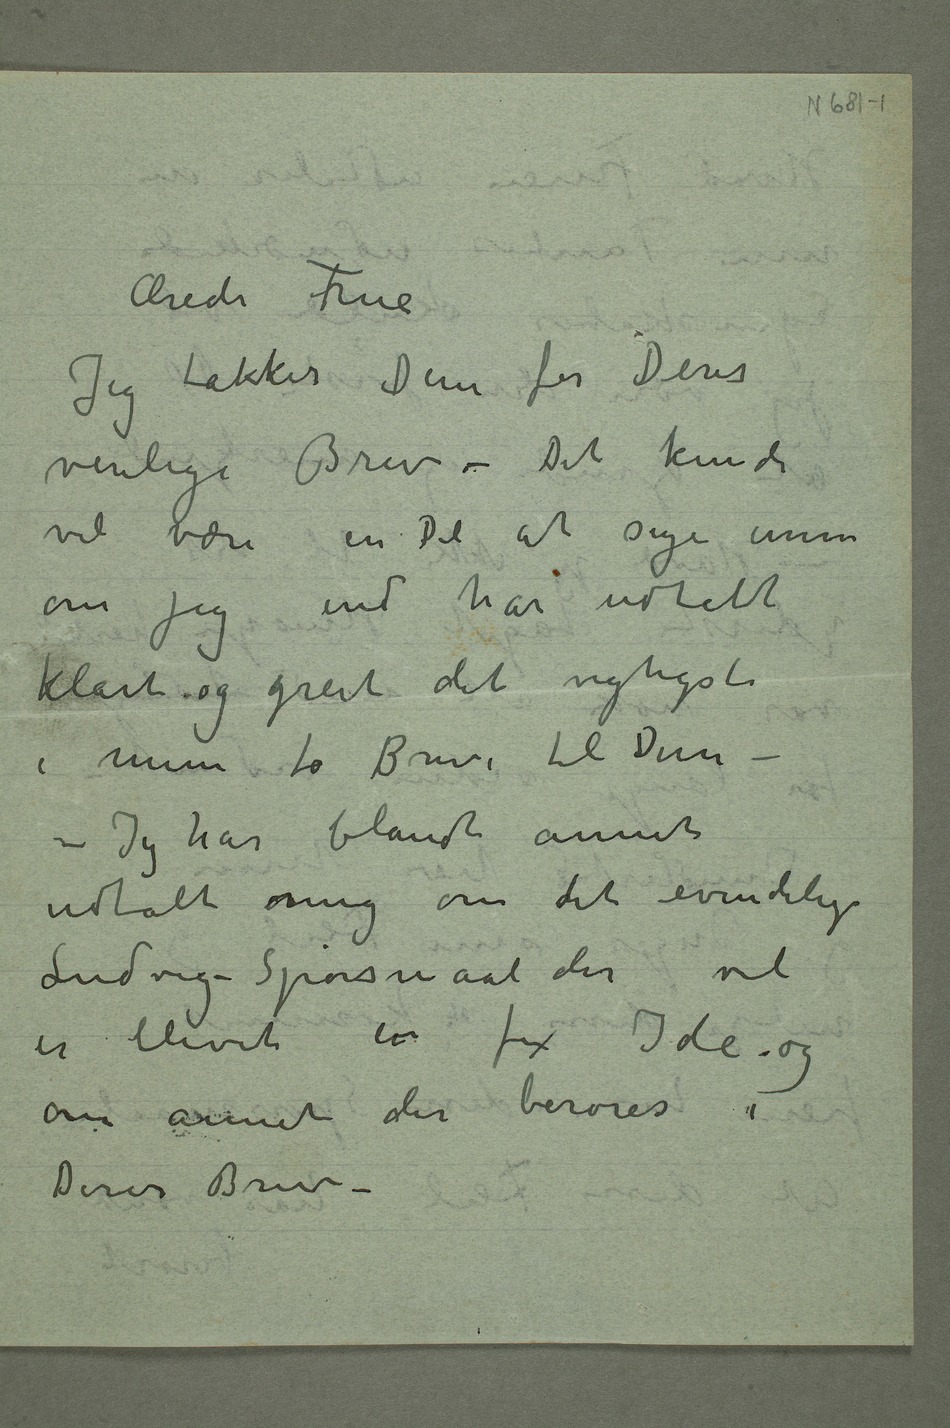 N 681-1
Ærede Frue
Jeg takker Dem for Deres
venlige Brev – Det kunde
vel være en Del at sige enn
om jeg end har udtalt
klart og greit det vigtigste
i mine to Breve til Dem –
– Jeg har blandt annet
udtalt mig om det evindelige
Ludvig-Spørsmaal der vel
er blevet en fix Ide og
om annet der berøres i
Deres Brev –